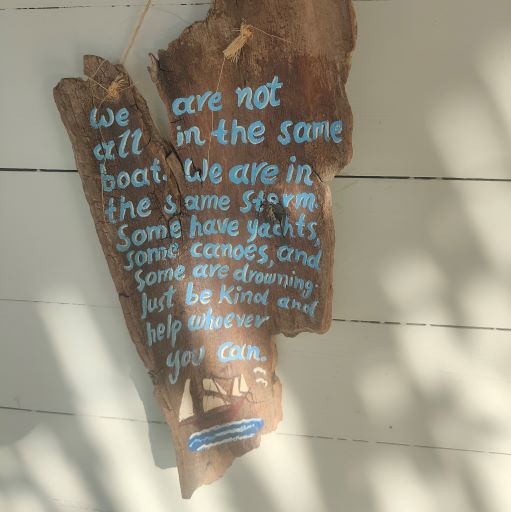 we are not
all in the same
boat. We are in
the same storm.
Some have yachts,
some canoes, and
some are drowning.
Just be kind and
help whoever
you can.